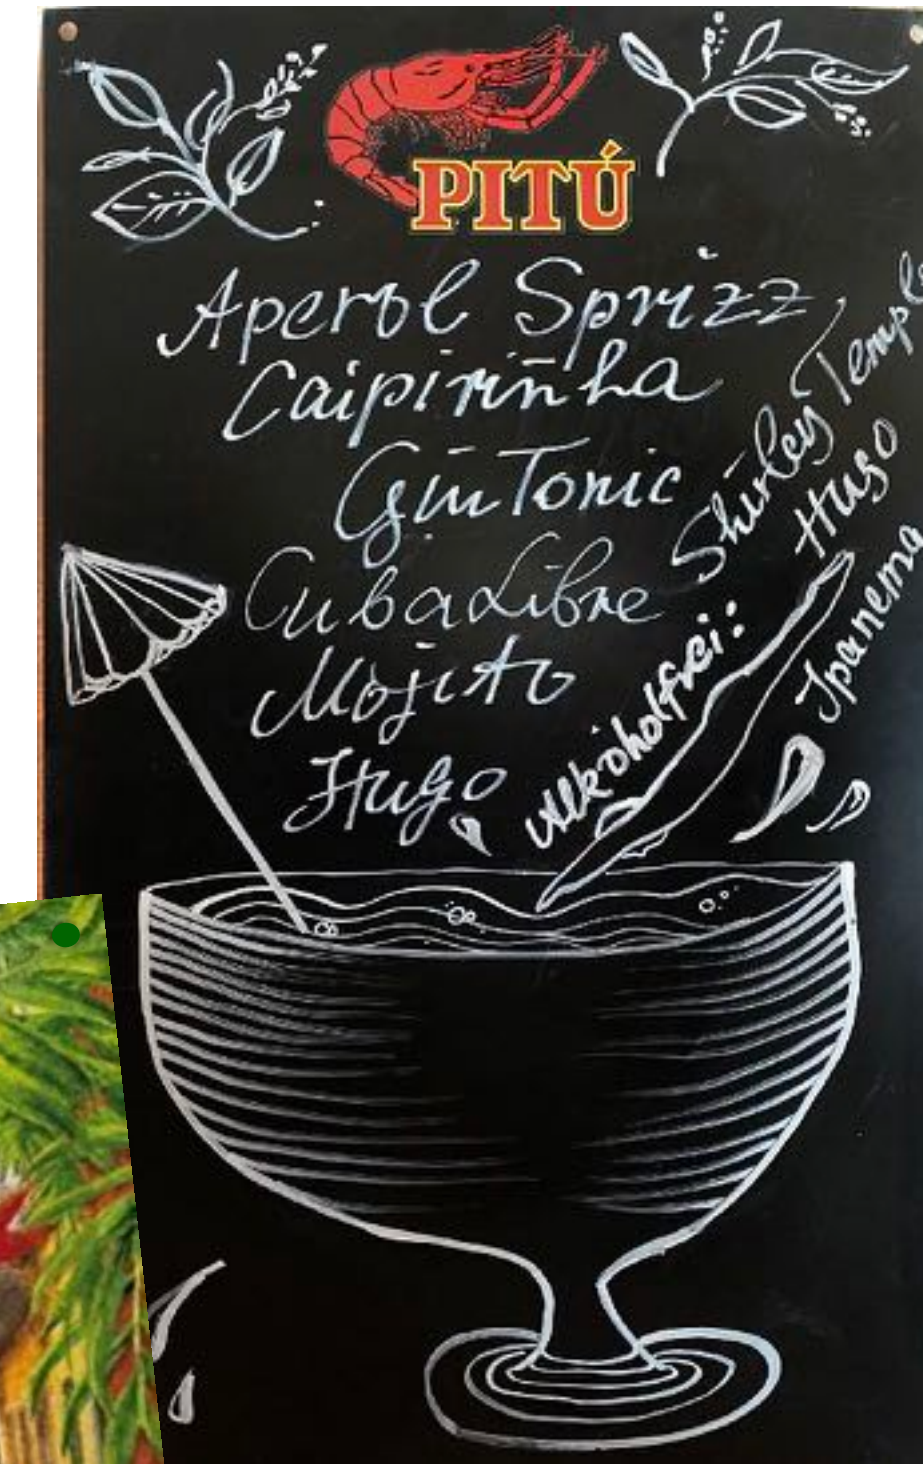 PITÚ
Aperol Sprizz
Caipirinha
Gin Tonic
Cuba Libre
Mojito
Hugo
Alkoholfrei:
Shirley Temple
Hugo
Ipanema